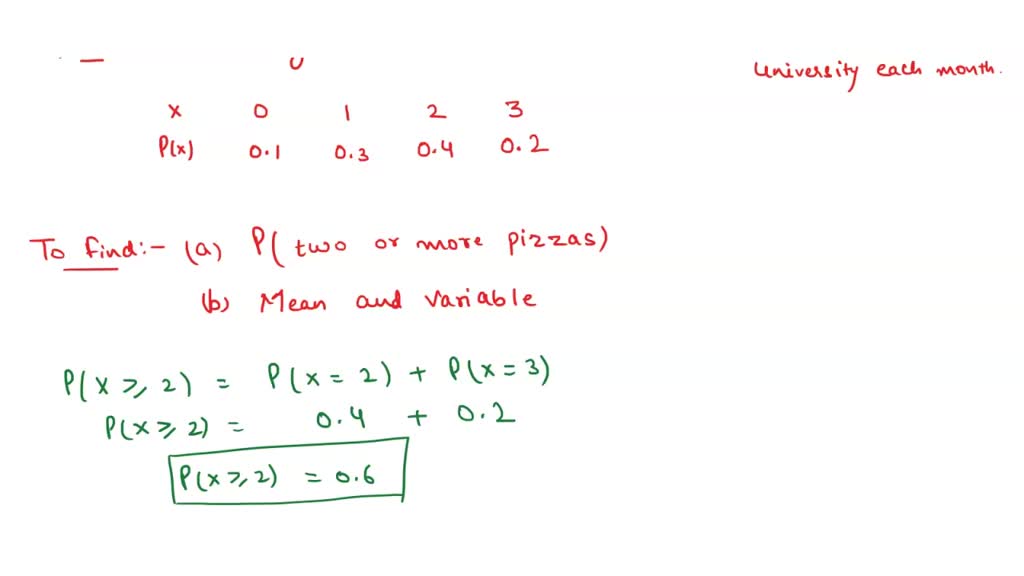 University each month.
x 0 1 2 3
P(x) 0.1 0.3 0.4 0.2
To find:- (a) P( two or more pizzas)
(b) Mean and variable
P(x ≥ 2) = P(x = 2) + P(x = 3)
P(x ≥ 2) = 0.4 + 0.2
P(x ≥ 2) = 0.6